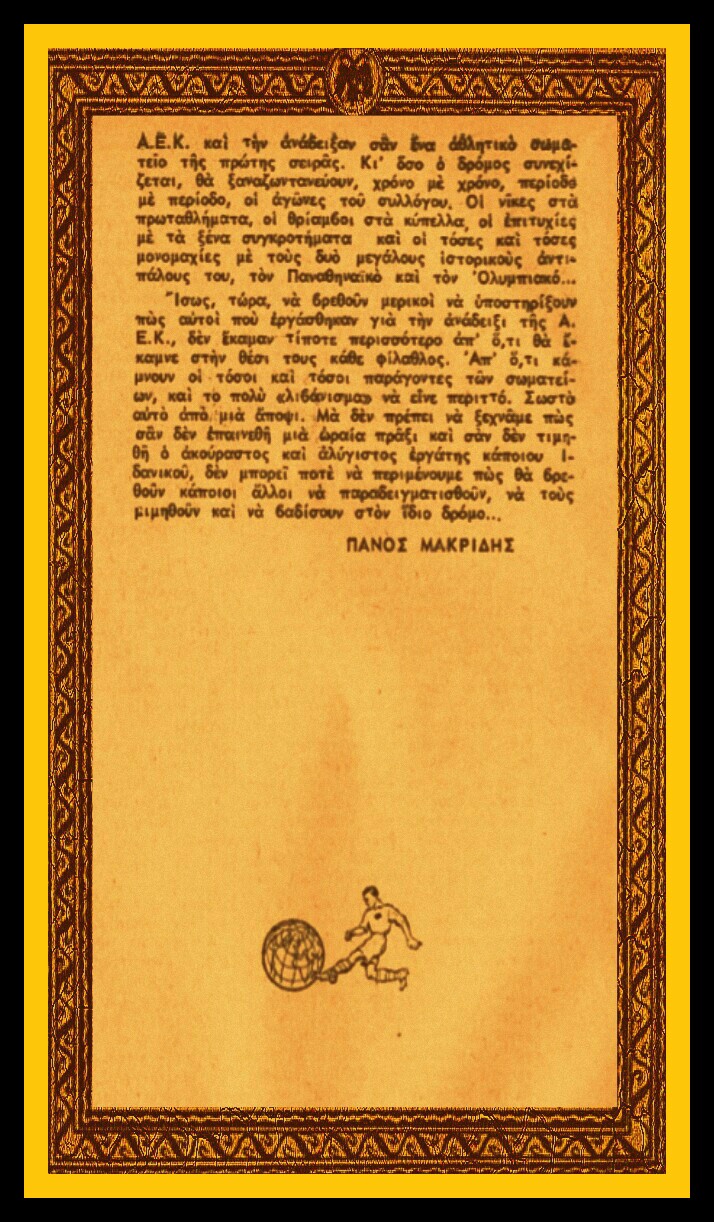 Α.Ε.Κ. καὶ τὴν ἀνάδειξαν σὰν ἕνα ἀθλητικὸ σωμα-
τεῖο τῆς πρώτης σειρᾶς. Κι' ὅσο ὁ δρόμος συνεχί-
ζεται, θὰ ξαναζωντανεύουν, χρόνο μὲ χρόνο, περίοδο
μὲ περίοδο, οἱ ἀγῶνες τοῦ συλλόγου. Οἱ νῖκες στὰ
πρωταθλήματα, οἱ θρίαμβοι στὰ κύπελλα, οἱ ἐπιτυχίες
μὲ τὰ ξένα συγκροτήματα καὶ οἱ τόσες καὶ τόσες
μονομαχίες μὲ τοὺς δυὸ μεγάλους ἱστορικοὺς ἀντι-
πάλους του, τὸν Παναθηναϊκὸ καὶ τὸν Ὀλυμπιακό...
Ἴσως, τώρα, νὰ βρεθοῦν μερικοὶ νὰ ὑποστηρίξουν
πὼς αὐτοὶ ποὺ ἐργάσθηκαν γιὰ τὴν ἀνάδειξι τῆς Α.
Ε.Κ., δὲν ἔκαμαν τίποτε περισσότερο ἀπ' ὅ,τι θὰ ἔ-
καμνε στὴν θέσι τους κάθε φίλαθλος. Ἀπ' ὅ,τι κά-
μνουν οἱ τόσοι καὶ τόσοι παράγοντες τῶν σωματεί-
ων, καὶ τὸ πολὺ «λιβάνισμα» νὰ εἶνε περιττό. Σωστὸ
αὐτὸ ἀπὸ μιὰ ἄποψι. Μὰ δὲν πρέπει νὰ ξεχνᾶμε πὼς
σὰν δὲν ἐπαινεθῆ μιὰ ὡραία πρᾶξι καὶ σὰν δὲν τιμη-
θῆ ὁ ἀκούραστος καὶ ἀλύγιστος ἐργάτης κάποιου Ἰ-
δανικοῦ, δὲν μπορεῖ ποτὲ νὰ περιμένουμε πὼς θὰ βρε-
θοῦν κάποιοι ἄλλοι νὰ παραδειγματισθοῦν, νὰ τοὺς
μιμηθοῦν καὶ νὰ βαδίσουν στὸν ἴδιο δρόμο...
ΠΑΝΟΣ ΜΑΚΡΙΔΗΣ